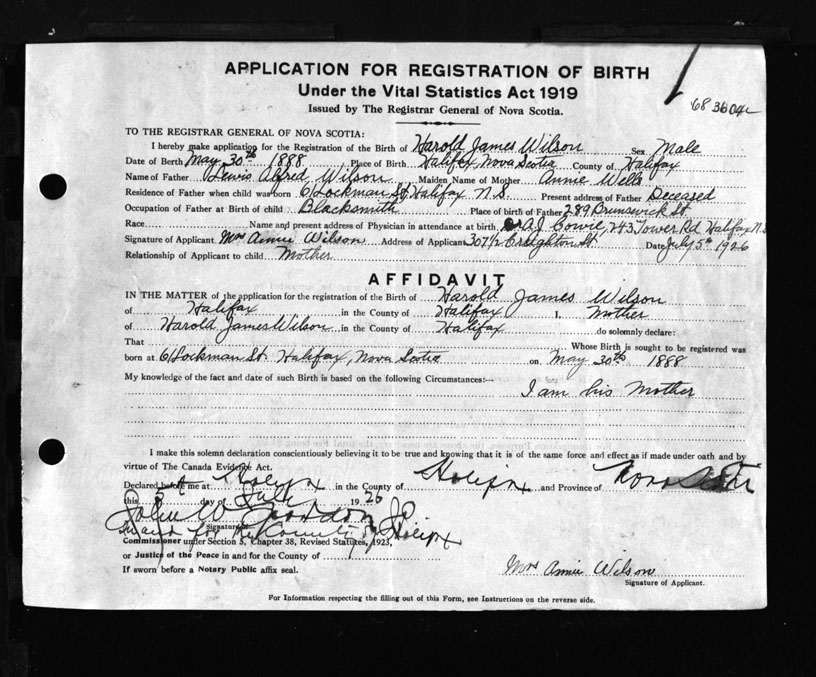 APPLICATION FOR REGISTRATION OF BIRTH
Under the Vital Statistics Act 1919
Issued by The Registrar General of Nova Scotia.
TO THE REGISTRAR GENERAL OF NOVA SCOTIA:
I hereby make application for the Registration of the Birth of Harold James Wilson Sex Male
Date of Birth May 30th 1888 Place of Birth Halifax, Nova Scotia County of Halifax
Name of Father Lewis Alfred Wilson Maiden Name of Mother Annie Wells
Residence of Father when child was born 61 Lockman St Halifax N.S. Present address of Father Deceased
Occupation of Father at Birth of child Blacksmith Place of birth of Father 289 Brunswick St.
Race Name and present address of Physician in attendance at birth, Dr A.J. Cowie, 243 Tower Rd Halifax N.S
Signature of Applicant Mrs Annie Wilson Address of Applicant 307 1/2 Creighton St Date July 5th 1926
Relationship of Applicant to child Mother
AFFIDAVIT
IN THE MATTER of the application for the registration of the Birth of Harold James Wilson
of Halifax in the County of Halifax I, Mother
of Harold James Wilson in the County of Halifax do solemnly declare:
That Whose Birth is sought to be registered was
born at 61 Lockman St. Halifax, Nova Scotia on May 30th 1888
My knowledge of the fact and date of such Birth is based on the following Circumstances:—
I am his Mother
I make this solemn declaration conscientiously believing it to be true and knowing that it is of the same force and effect as if made under oath and by
virtue of The Canada Evidence Act.
Declared before me at Halifax in the County of Halifax and Province of Nova Scotia
this 5th day of July 1926
John W
Signature
in and for the County of Halifax
Commissioner under Section 5, Chapter 38, Revised Statutes, 1923,
or Justice of the Peace in and for the County of
If sworn before a Notary Public affix seal.
Mrs Annie Wilson
Signature of Applicant.
For Information respecting the filling out of this Form, see Instructions on the reverse side.